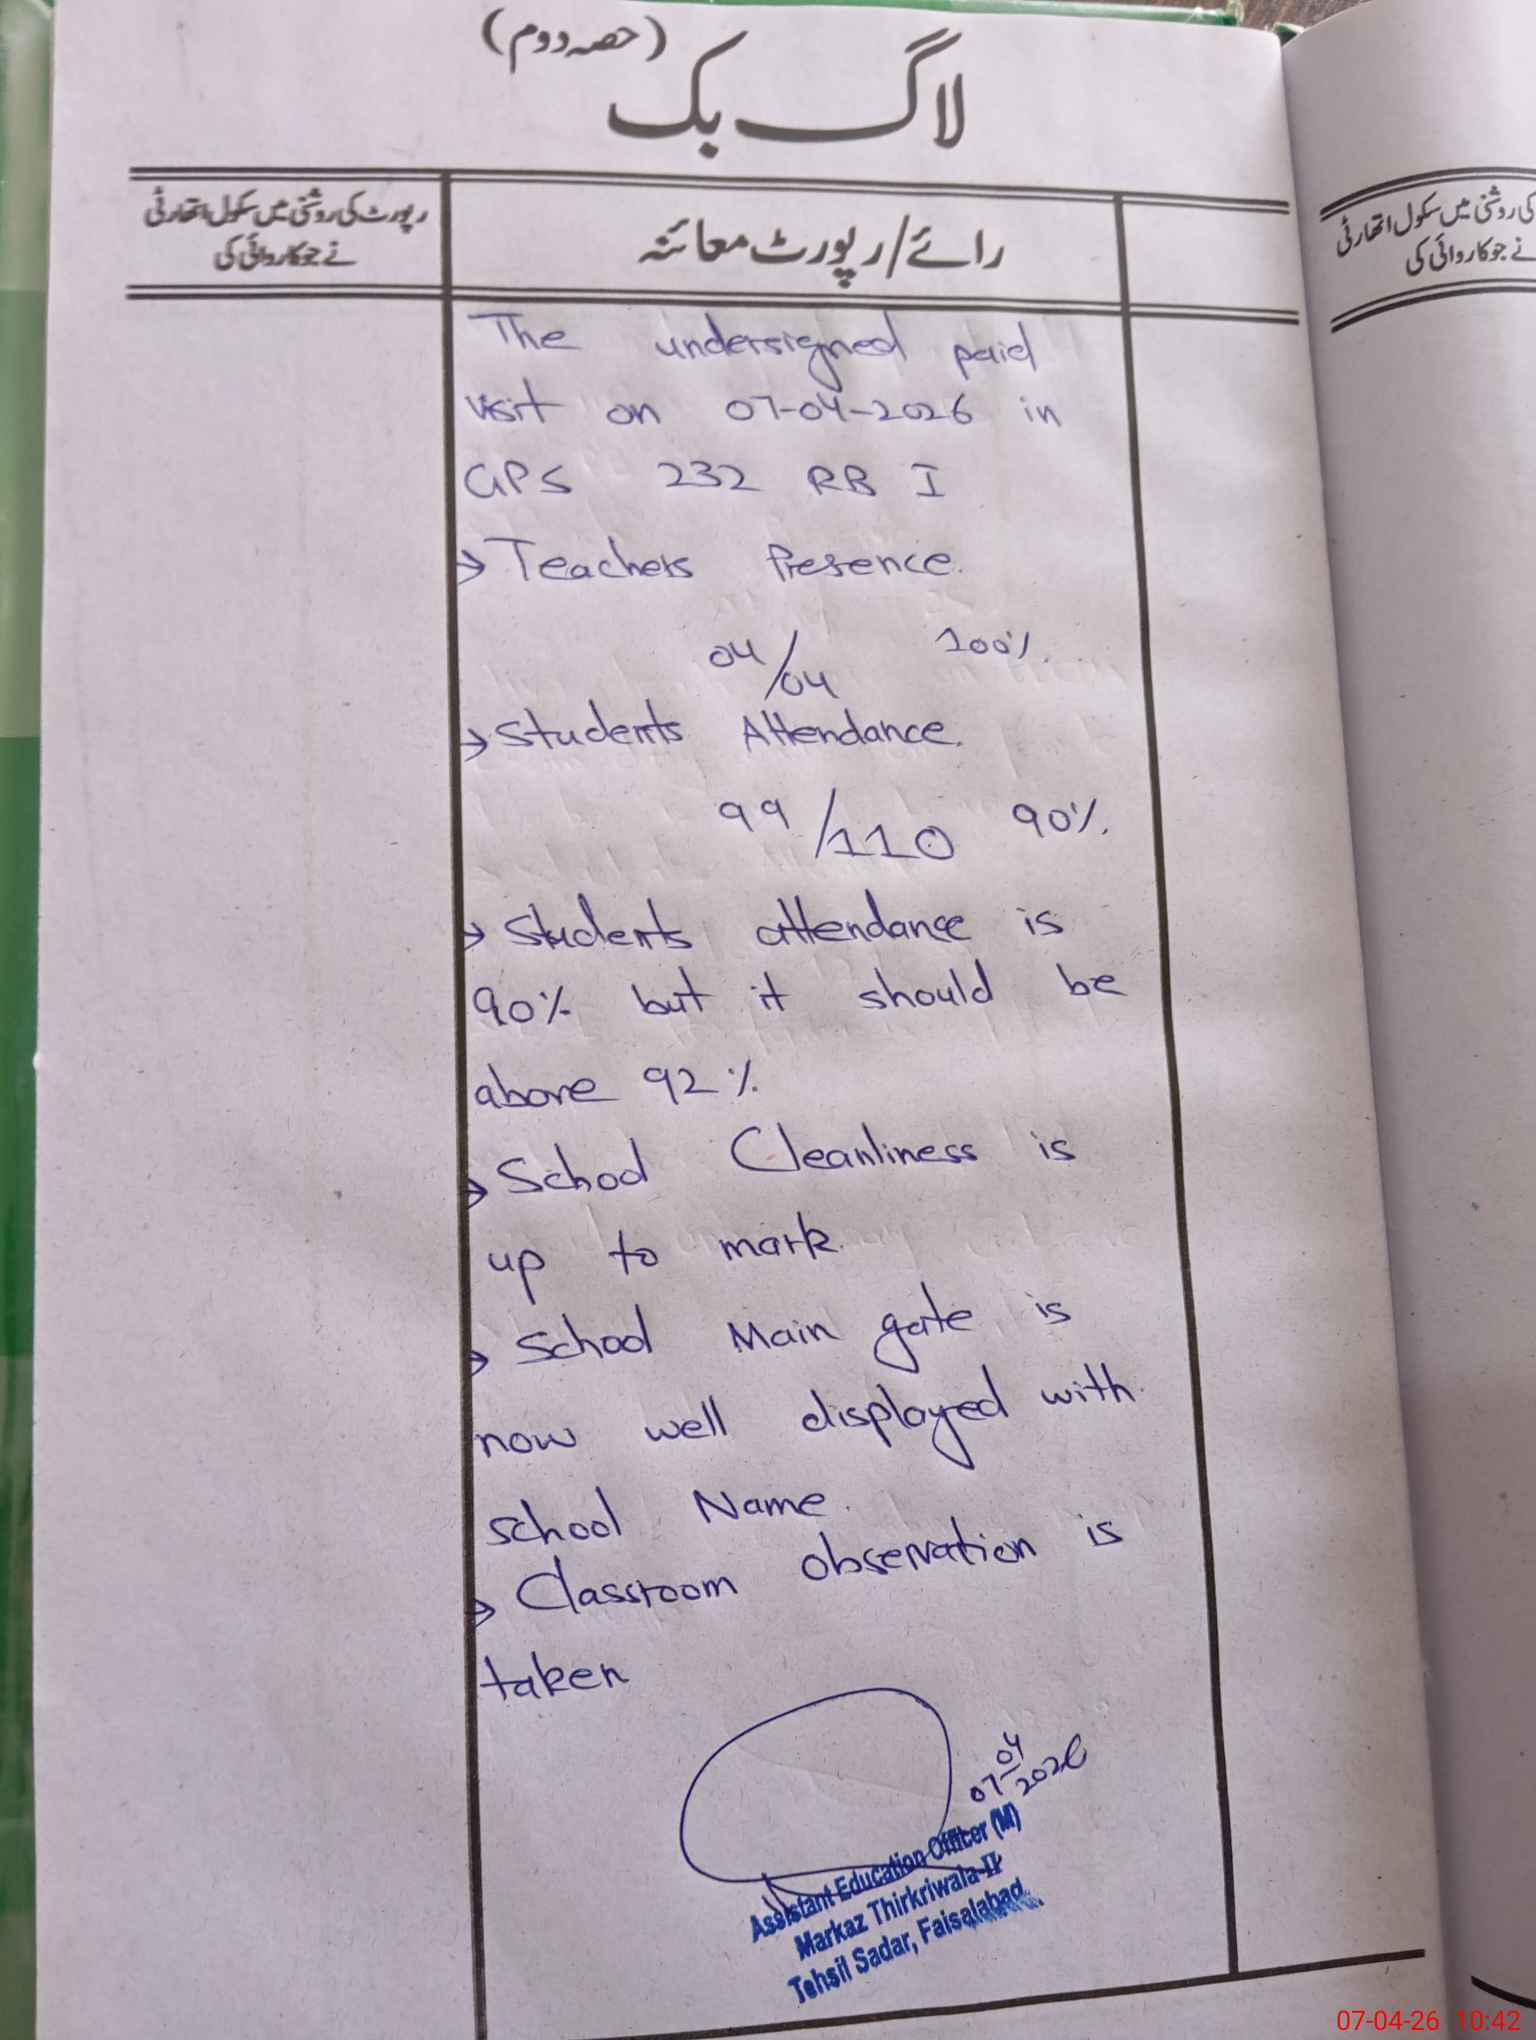 (حصہ دوم)
لاگ بک
رپورٹ کی روشنی میں سکول اتھارٹی
نے جو کاروائی کی
رائے/رپورٹ معائنہ
The undersigned paid
visit on 07-04-2026 in
GPS 232 RB I
→ Teachers Presence.
04/04 100%.
→ Students Attendance.
99/110 90%.
→ Students attendance is
90% but it should be
above 92%.
→ School Cleanliness is
up to mark.
→ School Main gate is
now well displayed with
school Name.
→ Classroom observation is
taken
07-04-2026
Assistant Education Officer (M)
Markaz Thirkriwala-II
Tehsil Sadar, Faisalabad
کی روشنی میں سکول اتھارٹی
نے جو کاروائی کی
07-04-26 10:42